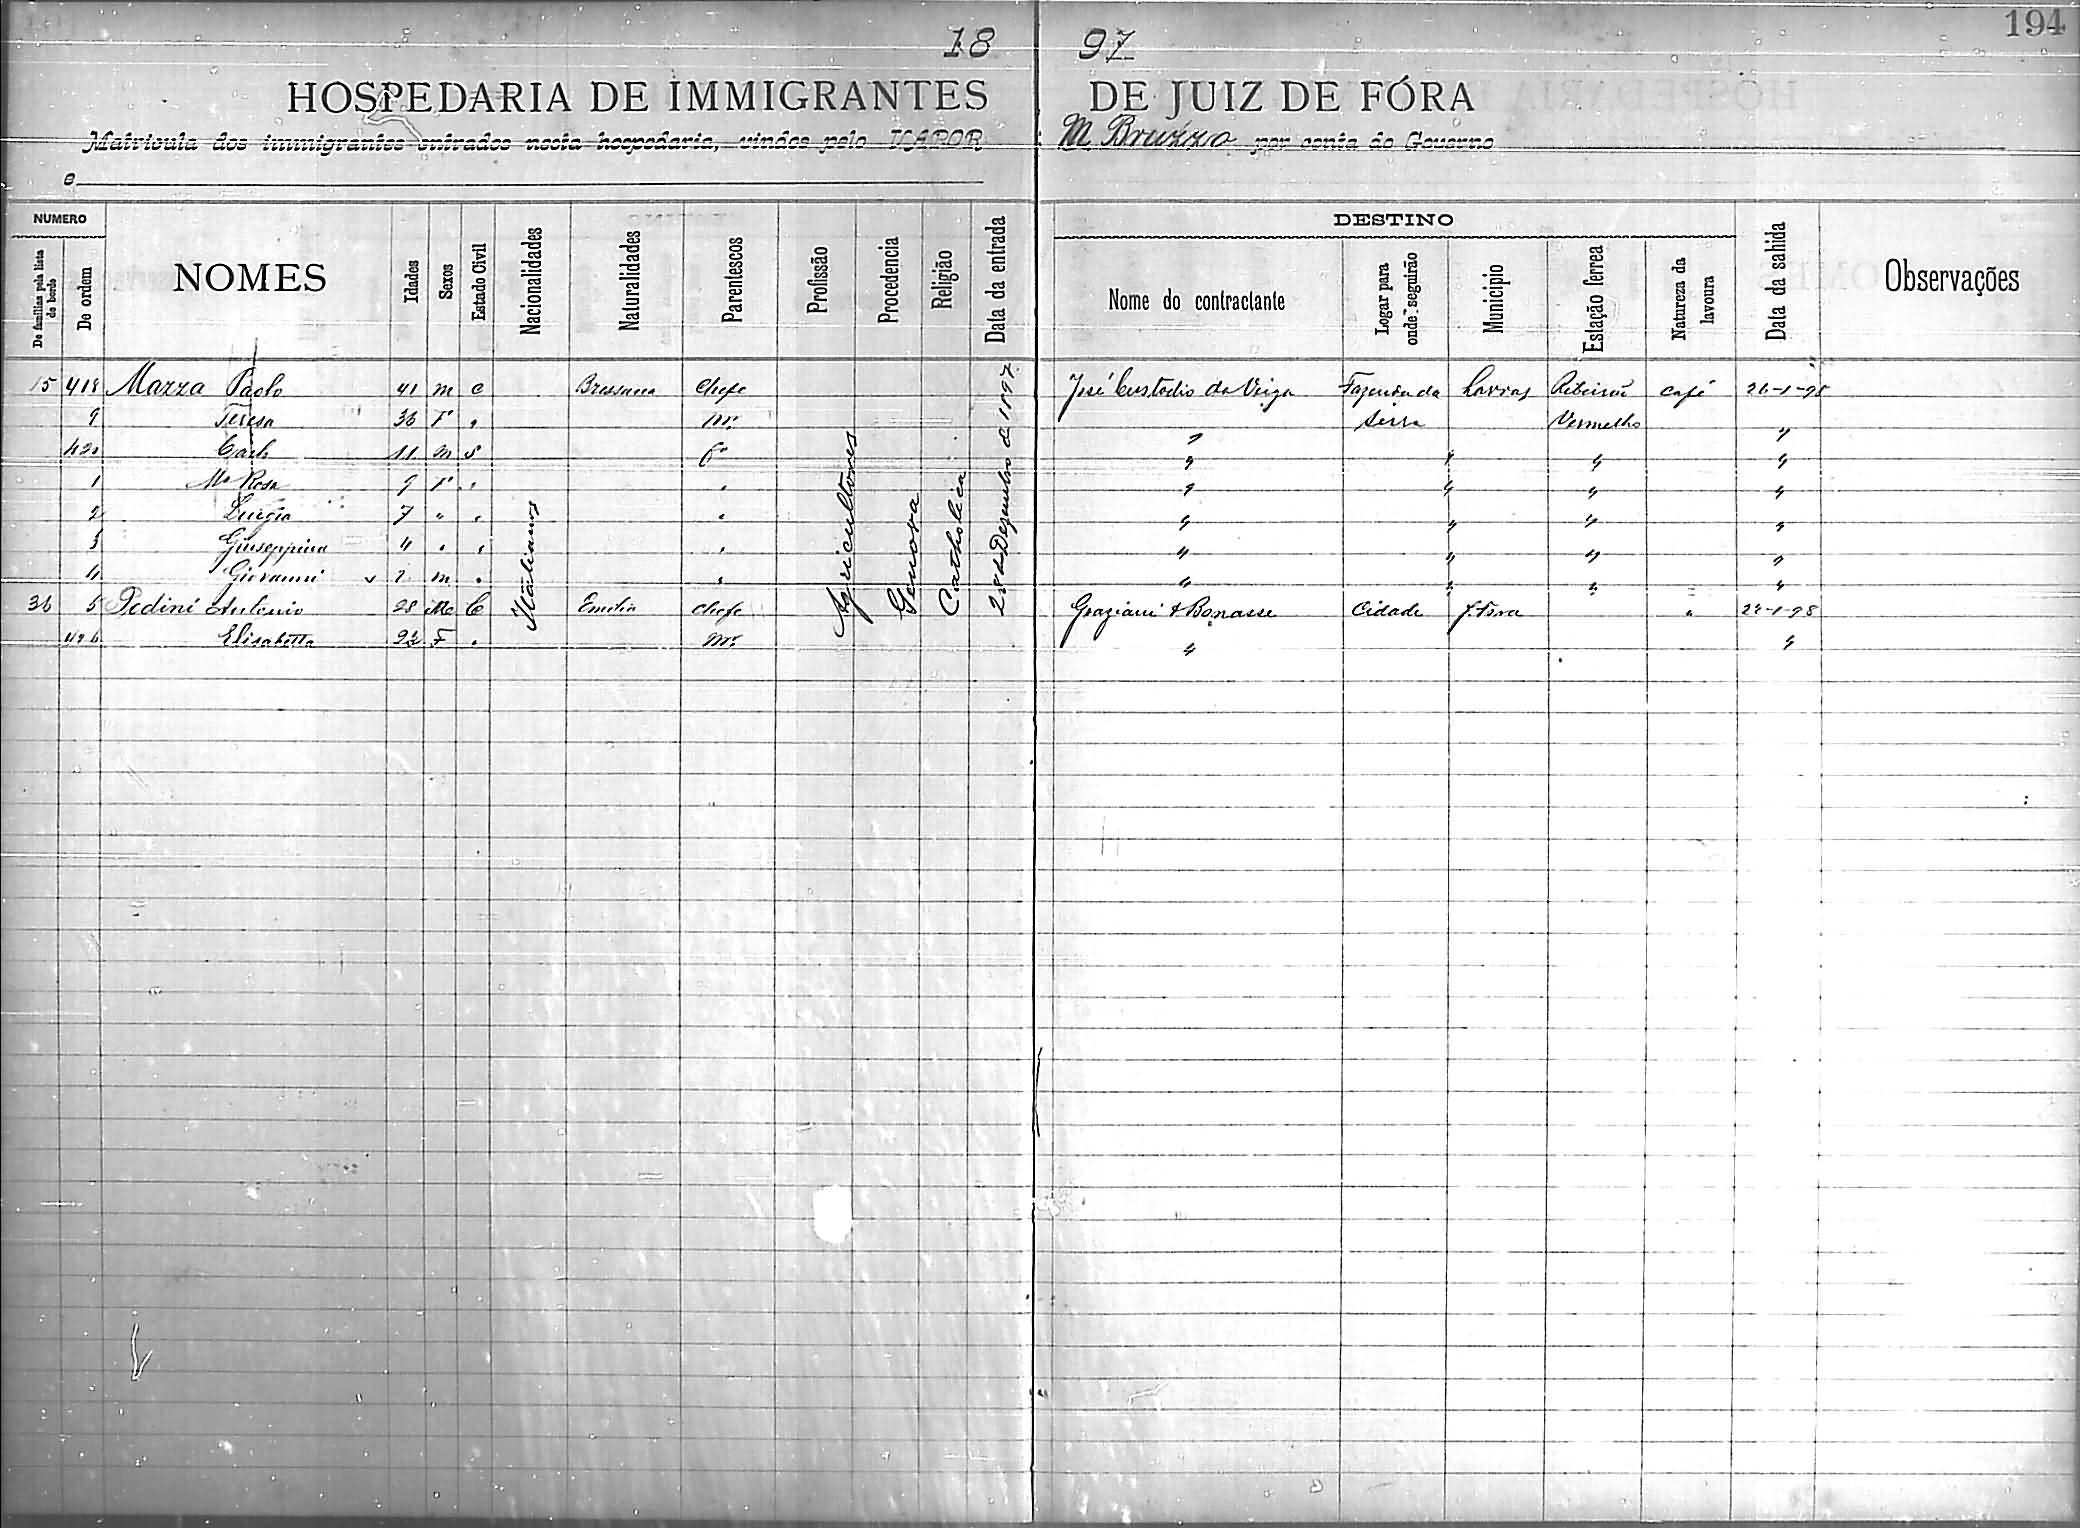 194
18 97
HOSPEDARIA DE IMMIGRANTES DE JUIZ DE FÓRA
Matricula dos immigrantes entrados nesta hospedaria, vindos pelo VAPOR M. Bruzzo por conta do Governo
e
NUMERO
De familias pela lista de bordo
De ordem
NOMES
Idades
Sexos
Estado Civil
Nacionalidades
Naturalidades
Parentescos
Profissão
Procedencia
Religião
Data da entrada
DESTINO
Nome do contractante
Logar para onde seguirão
Municipio
Estação ferrea
Natureza da lavoura
Data da sahida
Observações
418 Mazza Paolo 41 m c Chefe José Custodio da Veiga Fazenda da Lavras Ribeirão café
9 Teresa 36 F " mr. Serra Vermelho "
420 Carlo 11 m s fo " " " "
1 Ma Rosa 9 F " " " " " "
2 7 " " " " " " "
3 Giuseppina 4 " " " " " " "
4 Giovanni 2 m " " " " " "
36 5 Pedini Antonio 28 C Emilia Chefe Graziani & Bonasse Cidade J. Fora "
426 Elisabetta F " mr. " "
Italianos
Agricultores
Genova
Catholica
28 de Dezembro de 1897